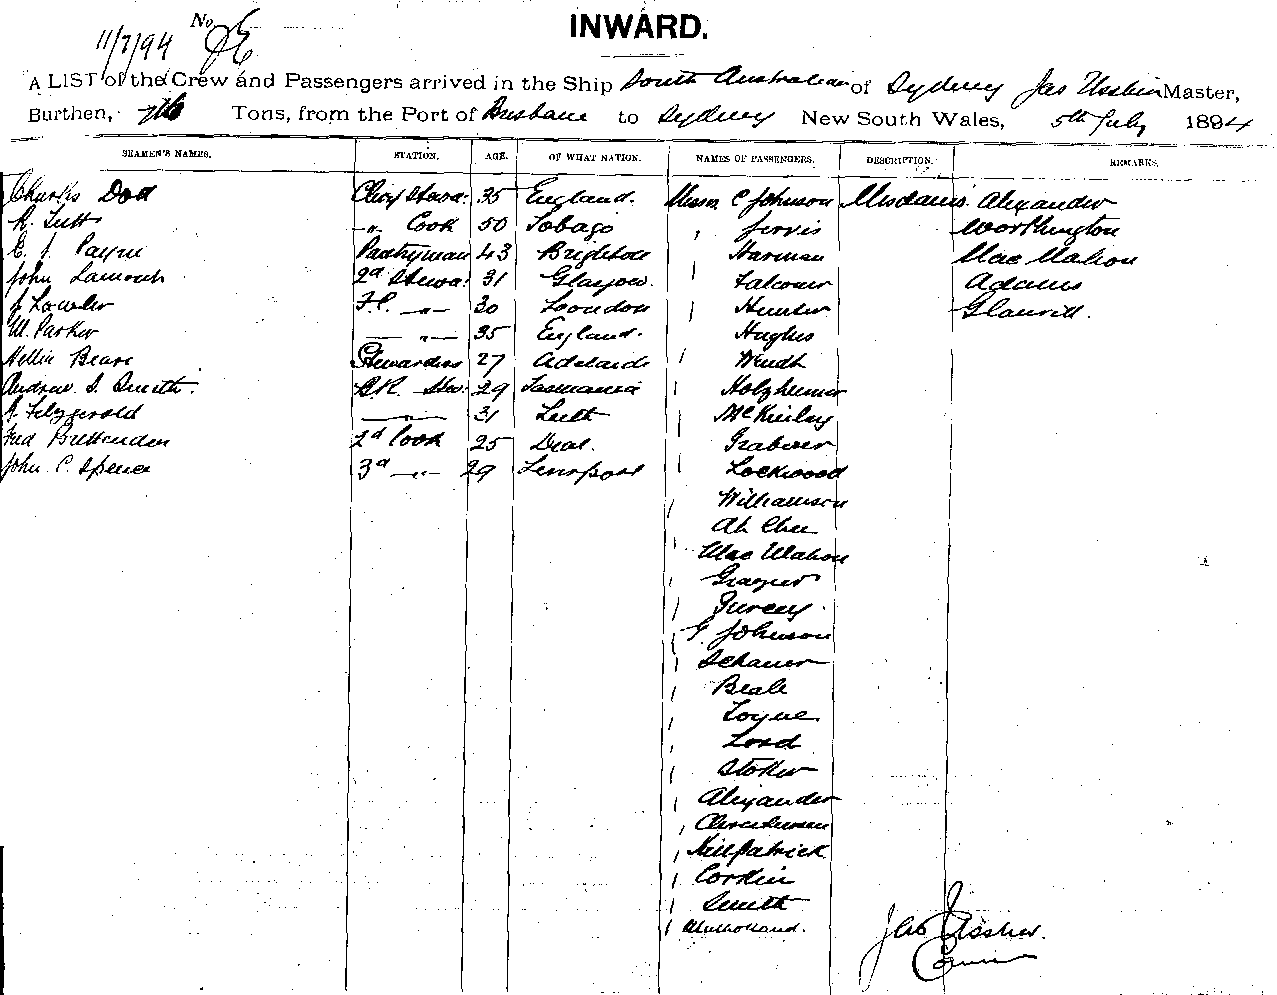 INWARD.
11/7/94 No
A LIST of the Crew and Passengers arrived in the Ship South Australian of Sydney Jas Ussher Master,
Burthen, 716 Tons, from the Port of Brisbane to Sydney New South Wales, 5th July 1894
SEAMEN'S NAMES. STATION. AGE. OF WHAT NATION. NAMES OF PASSENGERS. DESCRIPTION. REMARKS.
Charles Dod Chief Stewd: 35 England. Messrs C Johnson Mesdams. Alexander
" Cook 50 Tobago Jervis Worthington
E. J. Payne Pantryman 43 Brighton Harman Mac Mahon
John Lamouth 2d Stewd: 31 Glasgow. Falconer Adams
J Lawler F.C. " 30 London Hunter Glanvill.
W. Parker " 35 England. Hughes
Nellie Beare Stewardess 27 Adelaide Wendt
Andrew S. Smith. B.R. Stew: 29 Tasmania Holzheimer
J. Fitzgerald " 31 Leith McKinlay
Fred Brittenden 2d Cook 25 Deal. Grabner
John C Spence 3d " 29 Liverpool Lockwood
Williamson
Ah Chee
Mac Mahon
Grazier
Furcey
G. Johnson
Schauer
Beale
Logue
Lord
Stoker
Alexander
Christensen
Killpatrick
Corkin
Smith
Mulholland.
Jas Ussher.